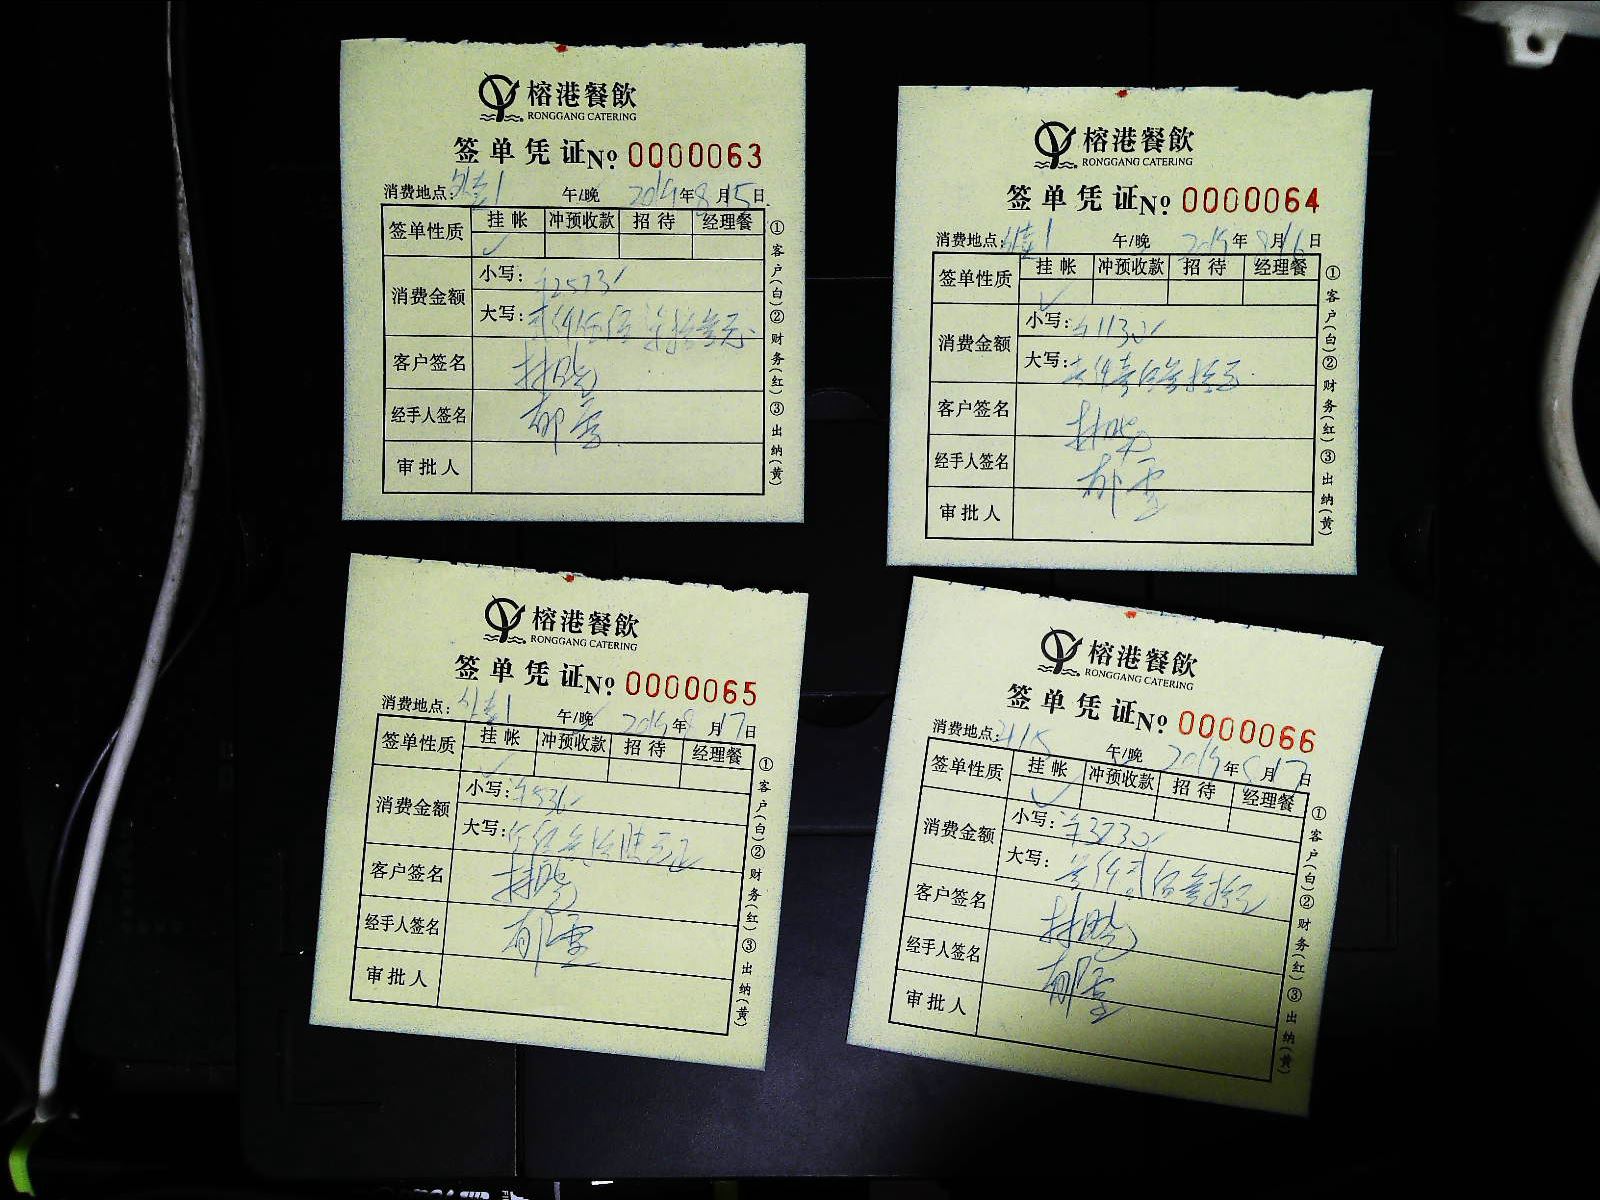 榕港餐飲
RONGGANG CATERING
签单凭证 № 0000063
消费地点: 午/晚 2019年8月15日
签单性质 挂帐 冲预收款 招待 经理餐
✓
消费金额 小写: ¥2573
大写: 贰仟伍佰柒拾叁元
客户签名
经手人签名
审批人
①客户(白)②财务(红)③出纳(黄)
榕港餐飲
RONGGANG CATERING
签单凭证 № 0000064
消费地点: 午/晚 2019年8月16日
签单性质 挂帐 冲预收款 招待 经理餐
✓
消费金额 小写: ¥1130
大写: 壹仟壹佰叁拾元
客户签名
经手人签名
审批人
①客户(白)②财务(红)③出纳(黄)
榕港餐飲
RONGGANG CATERING
签单凭证 № 0000065
消费地点: 午/晚 2019年8月17日
签单性质 挂帐 冲预收款 招待 经理餐
✓
消费金额 小写:
大写:
客户签名
经手人签名
审批人
①客户(白)②财务(红)③出纳(黄)
榕港餐飲
RONGGANG CATERING
签单凭证 № 0000066
消费地点: 午/晚 2019年8月17日
签单性质 挂帐 冲预收款 招待 经理餐
✓
消费金额 小写: ¥3230
大写: 叁仟贰佰叁拾元
客户签名
经手人签名
审批人
①客户(白)②财务(红)③出纳(黄)